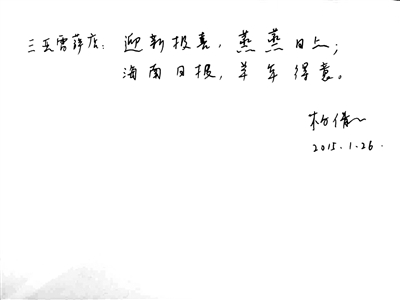 三亚雷萨店：迎新报喜，蒸蒸日上；
海南日报，羊年得意。
杨倩
2015.1.26.